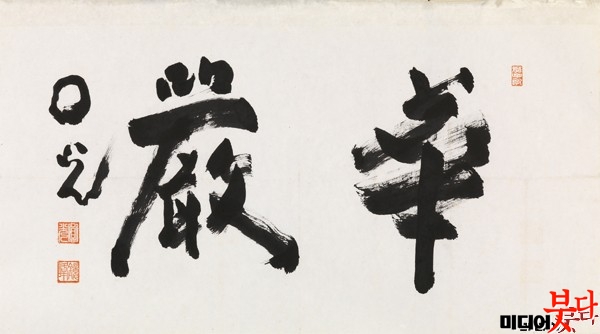 華嚴
○光
미디어붓다